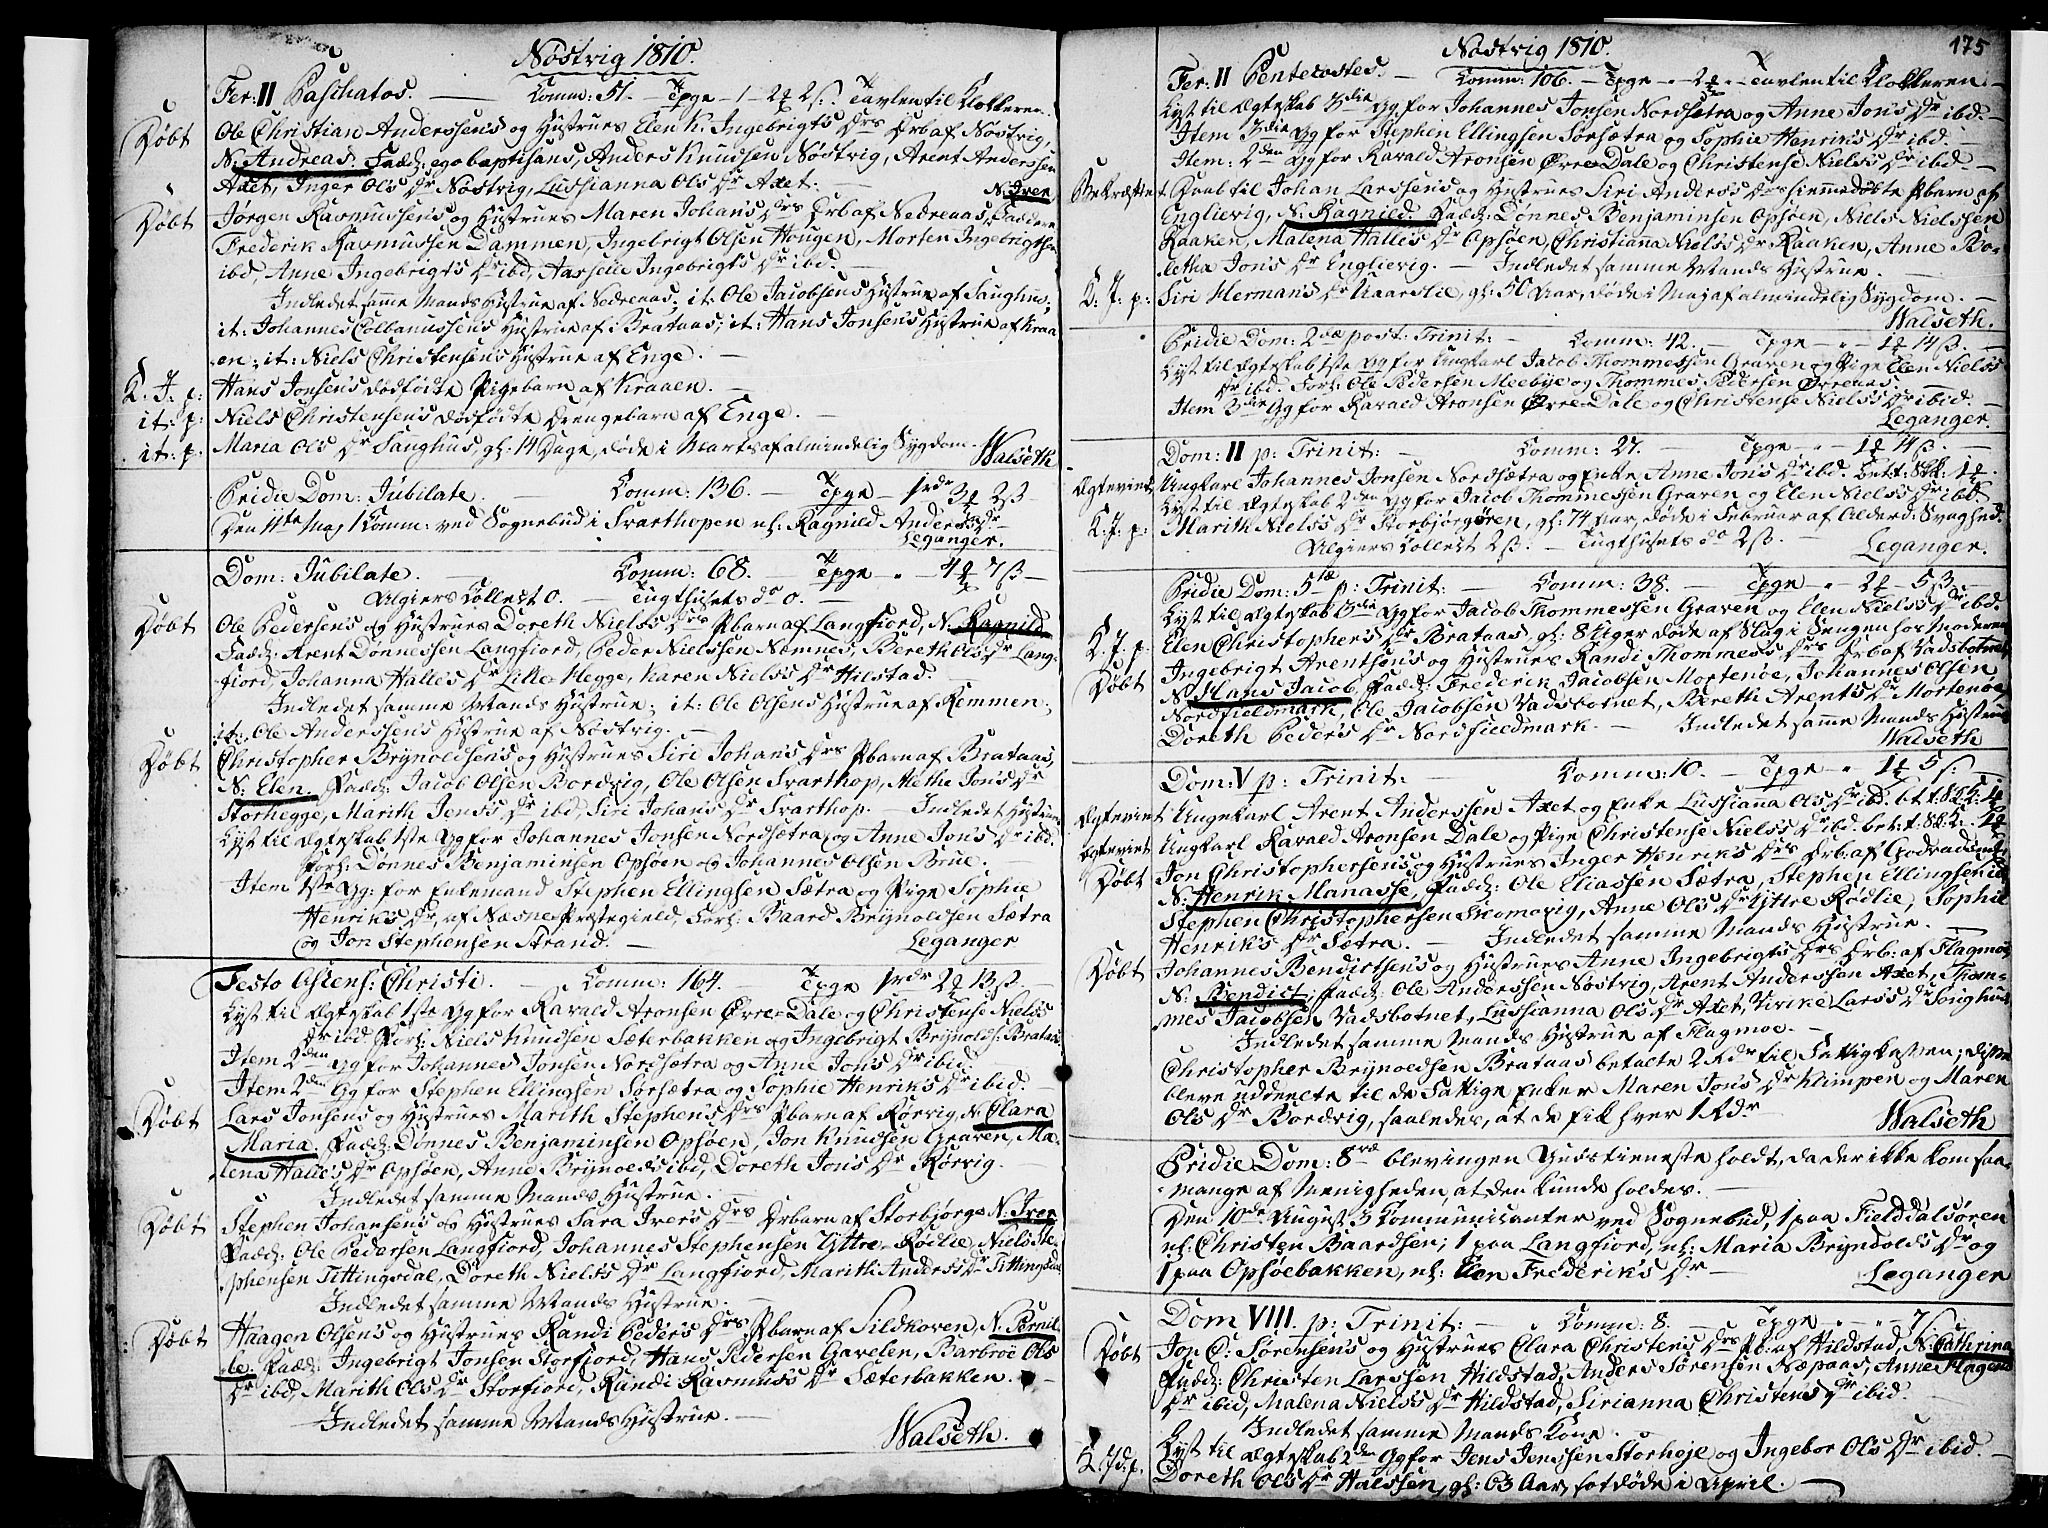 Nöstvig 1810.
Fer: II Paschatos. — Comm: 51. — Tavlen til Klokkeren
Döbt Ole Christian Anderssens og Hustrues Elen K. Ingebrigts Drs Drb af Nöstvig,
N: Andreas. Fadd: ego baptisans, Anders Knudsen Nöstvig, Arent Anderssen
Axet, Inger Ols Dr Nöstvig, Lussianna Ols Dr Axet. — N: Iver
Döbt Jörgen Rasmussens og Hustrues Maren Johans Drs Drb af Nedreaas, Faddere
Frederik Rasmussen Dammen, Ingebrigt Olsen Hougen, Morten Ingebrigtsen
ibd, Anne Ingebrigts Dr ibd, Aarselle Ingebrigts Dr ibd. —
Indledet samme Mands Hustrue af Nedreaas; it: Ole Jacobsens Hustrue af Saughus;
it: Johannes Collanussens Hustrue af Brataas; it: Hans Jonsens Hustrue af Kraa-
en; it: Niels Christensens Hustrue af Enge. —
K. J. p: Hans Jonsens dödfödte Pigebarn af Kraaen. —
it: p: Niels Christensens dödfödte Drengebarn af Enge. —
it: p. Maria Ols Dr Saughus, gl. 14 Dage, döde i Marts af almindelig Sygdom. Walseth
Pridie Dom: Jubilate. — Comm: 136. —
Den 11te Maj 1 Comm: ved Sognebud i Svarthopen nl: Ragnild Anders Dr —
Leganger.
Dom: Jubilate. — Comm: 68. —
Algiers Collect 0. — Tugthusets do 0. —
Döbt Ole Pedersens og Hustrues Doreth Niels's Drs Pbarn af Langfiord, N. Ragnild
Fadd: Arent Dönnessen Langfiord, Peder Nielssen Nemnes, Bereth Ols Dr Lang-
fiord, Johanna Halles Dr Lille-Hegge, Karen Niels's Dr Hilstad. —
Indledet samme Mands Hustrue; it: Ole Olsens Hustrue af Remmen;
it: Ole Anderssens Hustrue af Nöstvig. —
Döbt Christopher Brynoldsens og Hustrues Siri Johans Drs Pbarn af Brataas,
N: Elen. Fadd: Jacob Olsen Bordvig, Ole Olsen Svarthop, Methe Jons Dr
Storhegge, Marith Jens's Dr ibd, Siri Johans Dr Svarthop. — Indledet Hustrue
Lyst til Ægteskab 1ste Gg for Johannes Jonsen Nordsætra og Anne Jons Dr ibd.
Forl: Dönnes Benjaminsen Opsöen og Johannes Olsen Brue. —
Item 1ste Gg: for Enkemand Stephen Ellingsen Sætra og Pige Sophie
Henriks Dr, af Næsne Præstegield, Forl: Baard Brynoldsen Sætra
og Jon Stephensen Strand. — Leganger
Festo Ascens: Christi. — Comm: 164. —
Lyst til Ægteskab 1ste Gg for Ravald Aronsen Övre-Dale og Christense Niels's
Dr ibd Forl: Niels Knudsen Sæterbakken og Ingebrigt Brynolds: Brataas
Item 2den Gg for Johannes Jonsen Nordsætra og Anne Jons Dr ibid.
Item 2den Gg for Stephen Ellingsen Sörsætra og Sophie Henriks Dr ibid. —
Döbt Lars Jonsens og Hustrues Marith Stephens Drs Pbarn af Rörvig, N. Clara
Maria. Fadd: Dönnes Benjaminsen Opsöen, Jon Knudsen Graven, Ma-
lena Halles Dr Opsöen, Anne Brynolds ibd, Doreth Jons Dr Rörvig. —
Indledet samme Mands Hustrue. —
Döbt Stephen Johansens og Hustrues Sara Ivers Drs Drbarn af Storbjörge N: Iver
Fadd: Ole Pedersen Langfiord, Johannes Stephensen Yttre-Rödlie, Niels Ste-
phensen Tittingsdal, Doreth Niels's Dr Langfiord, Marith Anders's Dr Tittingsdal
Indledet samme Mands Hustrue. —
Döbt Haagen Olsens og Hustrues Randi Peders Drs Pbarn af Sildhoven, N. Pernil-
le. Fadd: Ingebrigt Jonsen Storfiord, Hans Pedersen Gavelen, Barbroe Ols
Dr ibd, Marith Ols Dr Storfiord, Randi Rasmus's Dr Sæterbakken. —
Indledet samme Mands Hustrue. —
Walseth.
Nöstvig 1810. 175
Fer: II Pentecostes. — Comm: 106. — Tavlen til Klokkeren —
Lyst til Ægteskab 3die Gg for Johannes Jonsen Nordsætra og Anne Jons Dr ibd. —
Item 3die Gg for Stephen Ellingsen Sörsætra og Sophie Henriks Dr ibd. —
Item: 2den Gg for Ravald Aronsen Övre-Dale og Christense Niels's Dr ibd —
Bekræftet Daab til Johan Larssens og Hustrues Siri Anders's Drs hiemmedöbte Pbarn af
Englievig, N. Ragnild. Fadd: Dönnes Benjaminsen Opsöen, Niels Nielssen
Raaken, Malena Halles Dr Opsöen, Christianna Niels's Dr Raaken, Anne Bo-
letha Jons Dr Englievig. — Indledet samme Mands Hustrue. —
K: J: p: Siri Hermans Dr Aaarslie, gl: 50 Aar, döde i Maj af almindelig Sygdom. —
Walseth.
Pridie Dom: 2dæ post: Trinit: — Comm: 42. —
Lyst til Ægteskab 1ste Gg for Ungkarl Jacob Thommessen Graven og Pige Elen Niels's
Dr ibid. Forl: Ole Pedersen Meebye og Thommes Pedersen Övrenes.
Item 3die Gg for Ravald Aronsen Övre-Dale og Christense Niels's Dr ibid: —
Leganger.
Dom: II p: Trinit: — Comm: 27. —
Ægteviet Ungkarl Johannes Jonsen Nordsætra og Enke Anne Jons Dr ibd.
Lyst til Ægteskab 2den Gg for Jacob Thommessen Graven og Elen Niels's Dr ibd
K: J: p: Marith Niels's Dr Storbjörgören, gl: 74 Aar, döde i Februar af Alderd: Svaghed.
Algiers Collect 2 ß. — Tugthusets do 2 ß. — Leganger.
Pridie Dom: 5tæ p: Trinit: — Comm: 38.
Lyst til Ægteskab 3die Gg for Jacob Thommessen Graven og Elen Niels's Dr ibd.
K. J. p. Elen Christophers Dr Brataas, gl: 8 Uger döde af Slag i Sengen hos Moderen
Döbt Ingebrigt Arentsens og Hustrues Randi Thommes's Drs Drb af Vadsbotnet,
N. Hans Jacob, Fadd: Frederik Jacobsen Mortenöe, Johannes Olsen
Nordfieldmark, Ole Jacobsen Vadsbotnet, Bereth Arents Dr Mortenöe,
Doreth Peders Dr Nordfieldmark. — Indledet samme Mands Hustrue
Walseth
Dom: V p: Trinit: — Comm: 10. —
Ægteviet Ungkarl Arent Anderssen Axet og Enke Lussianna Ols Dr ibd.
Ægteviet Ungkarl Ravald Aronsen Dale og Pige Christense Niels's Dr ibd.
Döbt Jon Christophersens og Hustrues Inger Henriks Drs Drb: af
N: Henrik Manasse, Fadd: Ole Eliassen Sætra, Stephen Ellingsen ibd,
Stephen Christophersen Sieomovig, Anne Ols Dr Yttre Rödlie, Sophie
Henriks Dr Sætra. — Indledet samme Mands Hustrue. —
Döbt Johannes Bendictsens og Hustrues Anne Ingebrigts Drs Drb: af Flagmoe
N: Bendict, Fadd: Ole Anderssen Nöstvig, Arent Anderssen Axet, Thom-
mes Jacobsen Vadsbotnet, Lussianna Ols Dr Axet, Virike Lars's Dr Soughus
Indledet samme Mands Hustrue af Flagmoe. —
Christopher Brynoldsen Brataas betalte 2 Rdr til Fattigkassen; disse
bleve uddeelte til de Fattige Enker Maren Jons Dr Klimpen og Maren
Ols Dr Bordvig, saaledes, at de fik hver 1 Rdr — Walseth
Pridie Dom: 8væ blev ingen Gudstieneste holdt, da der ikke kom saa
mange af Menigheden, at den kunde holdes. —
Den 10de August 3 Communicanter ved Sognebud, 1 paa Fielddalsören
nl: Christen Baardsen; 1 paa Langfiord, nl: Maria Brynolds Dr og
1 paa Opsöebakken, nl: Elen Frederiks Dr — Leganger
Dom VIII. p: Trinit: — Comm: 8. —
Döbt Jon O: Sörensens og Hustrues Clara Christens Drs Pb: af Hildstad, N: Cathrina
Fadd: Christen Larssen Hildstad, Anders Sörensen Næpaas, Anne
Dr ibid, Malena Niels's Dr Hildstad, Sirianna Christens Dr ibid.
Indledet samme Mands Kone. —
Lyst til Ægteskab 2den Gg for Jens Jenssen Storhöje og Ingebor Ols Dr ibid.
K. Jd. p. Doreth Ols Dr Halssen, gl: 63 Aar, döde i April. —